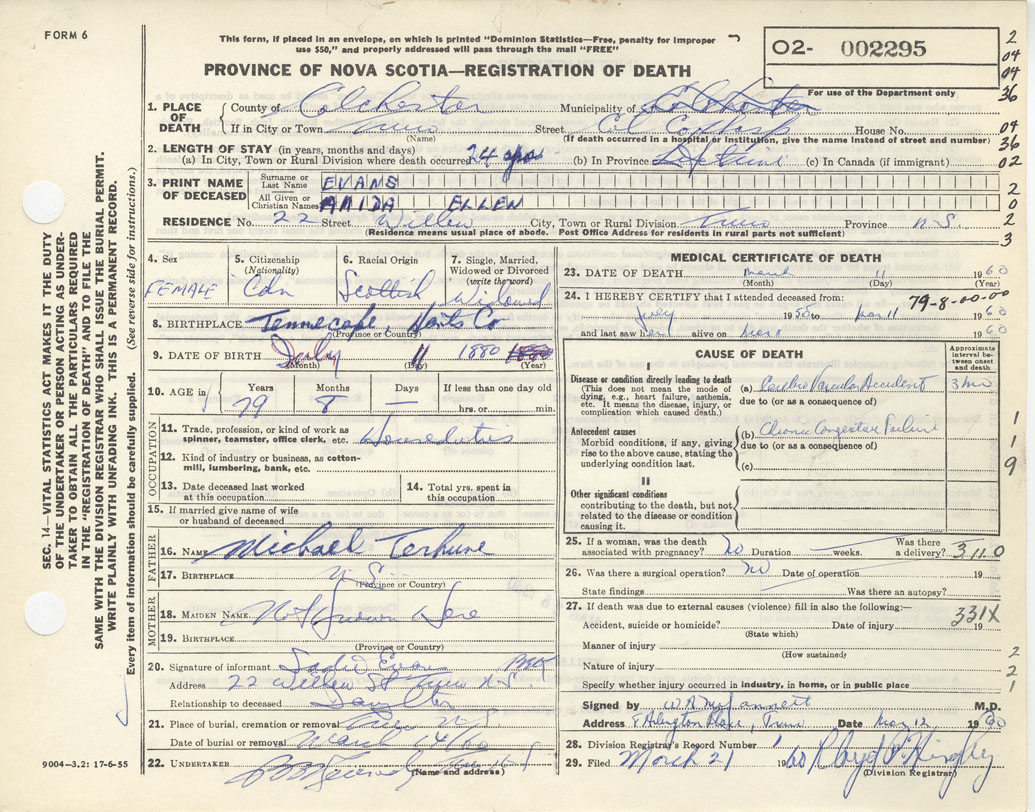 FORM 6
This form, if placed in an envelope, on which is printed "Dominion Statistics—Free, penalty for improper
use $50," and properly addressed will pass through the mail "FREE"
O2- 002295
For use of the Department only
PROVINCE OF NOVA SCOTIA—REGISTRATION OF DEATH
2
04
04
36
04
36
02
2
0
2
3
1. PLACE OF DEATH
County of Colchester Municipality of Colchester
If in City or Town Truro Street Col Co Hosp House No.
(Name) (If death occurred in a hospital or institution, give the name instead of street and number)
2. LENGTH OF STAY (in years, months and days)
(a) In City, Town or Rural Division where death occurred 24 (b) In Province Lifetime (c) In Canada (if immigrant)
3. PRINT NAME OF DECEASED
Surname or Last Name EVANS
All Given or Christian Names AMIDA ELLEN
RESIDENCE No. 22 Street Willow City, Town or Rural Division Truro Province N.S.
(Residence means usual place of abode. Post Office Address for residents in rural parts not sufficient)
4. Sex
FEMALE
5. Citizenship
(Nationality)
Cdn
6. Racial Origin
Scottish
7. Single, Married,
Widowed or Divorced
(write the word)
Widowed
8. BIRTHPLACE Tennecape, Hants Co
(Province or Country)
9. DATE OF BIRTH July 11 1880
(Month) (Day) (Year)
10. AGE in
Years Months Days If less than one day old
79 8 — hrs. or min.
OCCUPATION
11. Trade, profession, or kind of work as
spinner, teamster, office clerk, etc. Houseduties
12. Kind of industry or business, as cotton-
mill, lumbering, bank, etc.
13. Date deceased last worked
at this occupation
14. Total yrs. spent in
this occupation
15. If married give name of wife
or husband of deceased
FATHER
16. Name Michael Terhune
17. BIRTHPLACE N S
(Province or Country)
MOTHER
18. MAIDEN NAME Not Known Here
19. BIRTHPLACE
(Province or Country)
20. Signature of informant Sadie Evans
Address 22 Willow St Truro N.S.
Relationship to deceased Daughter
21. Place of burial, cremation or removal Truro N-S
Date of burial or removal March 14/60
22. UNDERTAKER
(Name and address)
9004-3.2: 17-6-55
MEDICAL CERTIFICATE OF DEATH
23. DATE OF DEATH March 11 1960
(Month) (Day) (Year)
24. I HEREBY CERTIFY that I attended deceased from: 79-8-00-00
July 1950 to Mar 11 1960
and last saw her alive on Mar 11 1960
CAUSE OF DEATH
Approximate interval between onset and death
I
Disease or condition directly leading to death
(This does not mean the mode of dying, e.g., heart failure, asthenia, etc. It means the disease, injury, or complication which caused death.)
(a) Cerebro Vascular Accident
due to (or as a consequence of)
Antecedent causes
Morbid conditions, if any, giving rise to the above cause, stating the underlying condition last.
(b) Chronic Congestive Failure
due to (or as a consequence of)
(c)
1
1
9
II
Other significant conditions
contributing to the death, but not related to the disease or condition causing it.
25. If a woman, was the death
associated with pregnancy? No Duration weeks. Was there
a delivery? 3110
26. Was there a surgical operation? No Date of operation 19
State findings Was there an autopsy?
27. If death was due to external causes (violence) fill in also the following:—
331X
Accident, suicide or homicide? Date of injury 19
(State which)
Manner of injury
(How sustained)
Nature of injury
Specify whether injury occurred in industry, in home, or in public place
2
2
1
Signed by M.D.
Address Arlington Place, Truro Date Mar 12 1960
28. Division Registrar's Record Number
29. Filed March 21 1960
(Division Registrar)
SEC. 14—VITAL STATISTICS ACT MAKES IT THE DUTY
OF THE UNDERTAKER OR PERSON ACTING AS UNDER-
TAKER TO OBTAIN ALL THE PARTICULARS REQUIRED
IN THE "REGISTRATION OF DEATH" AND TO FILE THE
SAME WITH THE DIVISION REGISTRAR WHO SHALL ISSUE THE BURIAL PERMIT.
WRITE PLAINLY WITH UNFADING INK. THIS IS A PERMANENT RECORD.
Every item of information should be carefully supplied. (See reverse side for instructions.)